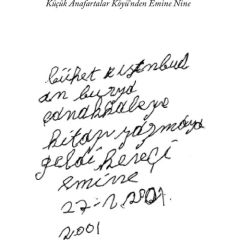 Küçük Anafartalar Köyü'nden Emine Nine
bühet ıstnbul
an burya
çanakkaleye
kitap yazmaya
geldi hereçi
emine
27-1.2001.
2001